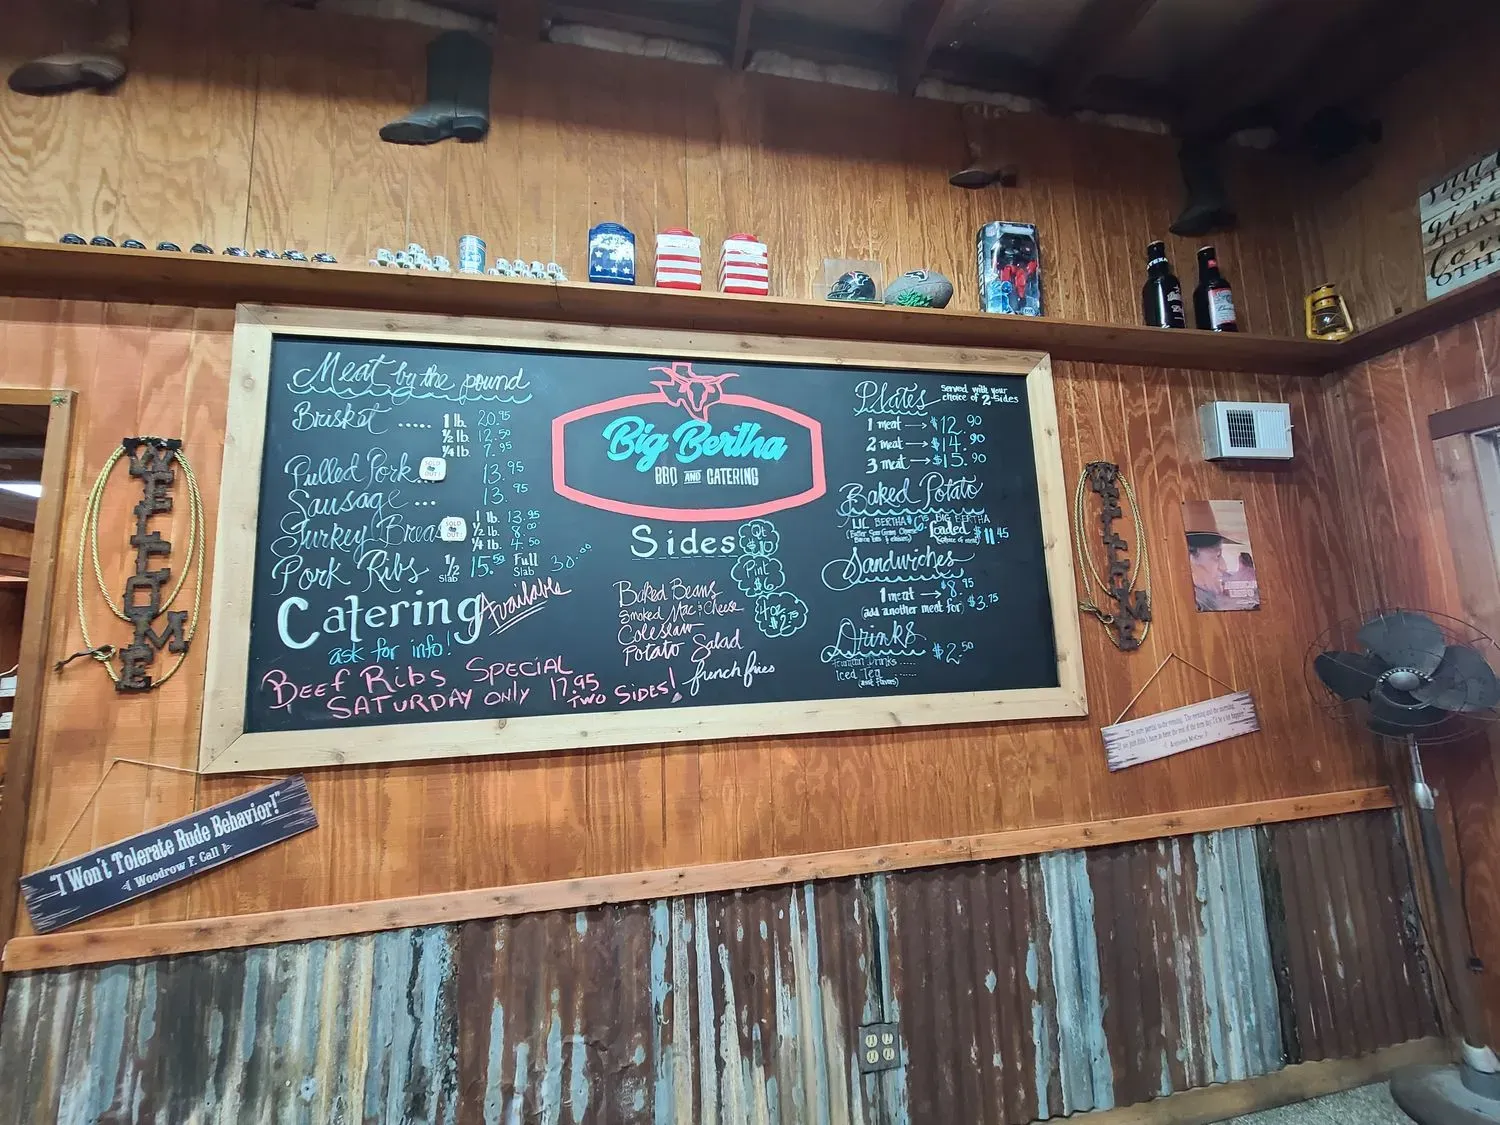 Meat by the pound
Brisket ..... 1 lb. 20.95
½ lb. 12.50
¼ lb. 7.95
Pulled Pork... SOLD OUT! 13.95
Sausage ... 13.95
Turkey Breast SOLD OUT! 1 lb. 13.95
½ lb. 8.00
¼ lb. 4.50
Pork Ribs ½ Slab 15.50 Full Slab 30.00
Catering Available
ask for info!
BEEF RIBS SPECIAL
SATURDAY ONLY 17.95
TWO SIDES!
Big Bertha
BBQ AND CATERING
Sides
Qt $10
Pint $6
4oz $2.75
Baked Beans
Smoked Mac & Cheese
Coleslaw
Potato Salad
french fries
Plates served with your choice of 2 sides
1 meat → $12.90
2 meat → $14.90
3 meat → $15.90
Baked Potato
LIL BERTHA
BIG BERTHA
Loaded $11.45
(choice of meat)
Sandwiches
1 meat → $8.95
(add another meat for) $3.75
Drinks
$2.50
Fountain Drinks .....
Iced Tea ......
WELCOME
WELCOME
"I Won't Tolerate Rude Behavior!"
Woodrow F. Call
Augustus McCrae
OTH